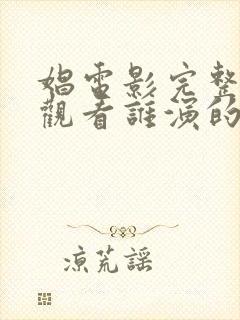 娼電影完整
觀看誰演的
涼荒謠